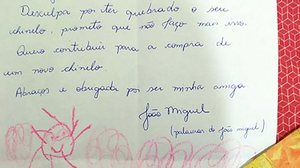 Desculpa por ter quebrado o seu
chinelo, prometo que não faço mais isso.
Quero contribuir para a compra de
um novo chinelo
Abraços e obrigada por ser minha amiga
João Miguel
(palavras do joão miguel)